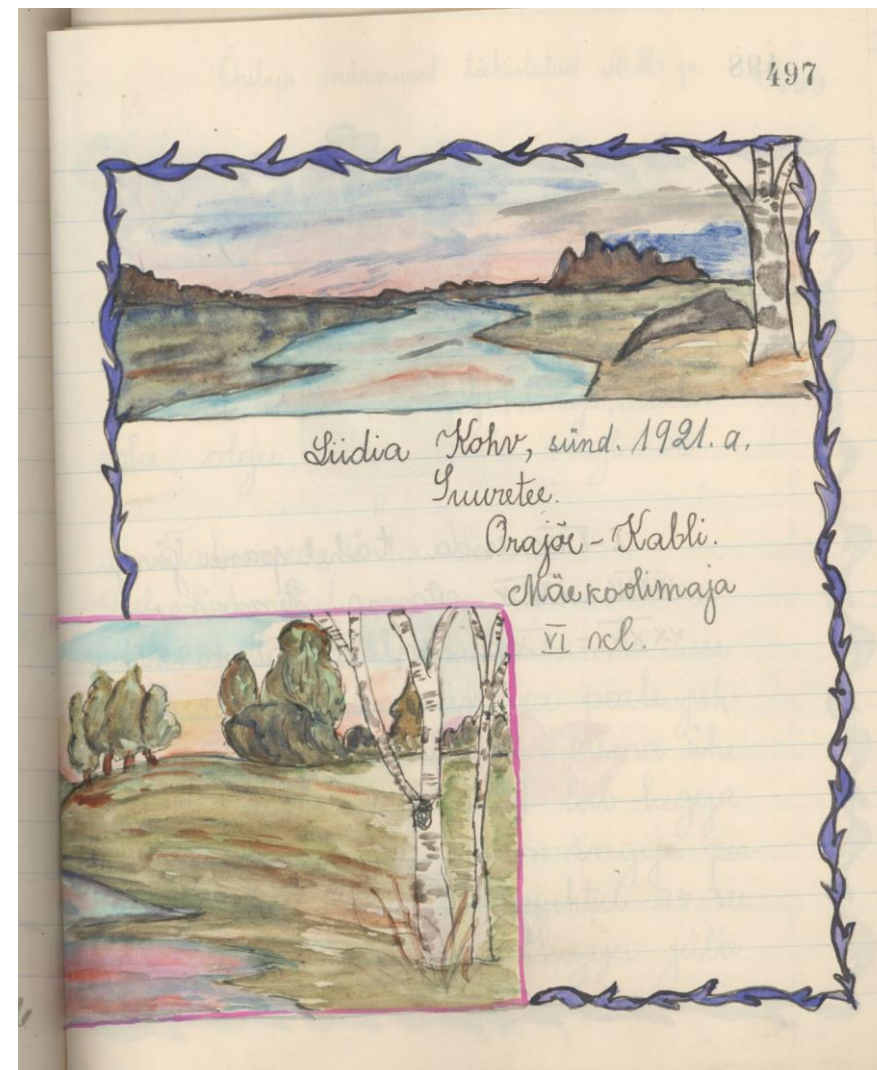 497
Liidia Kohv, sünd. 1921. a.
Suuretee.
Orajõe-Kabli.
Mäekoolimaja
VI kl.